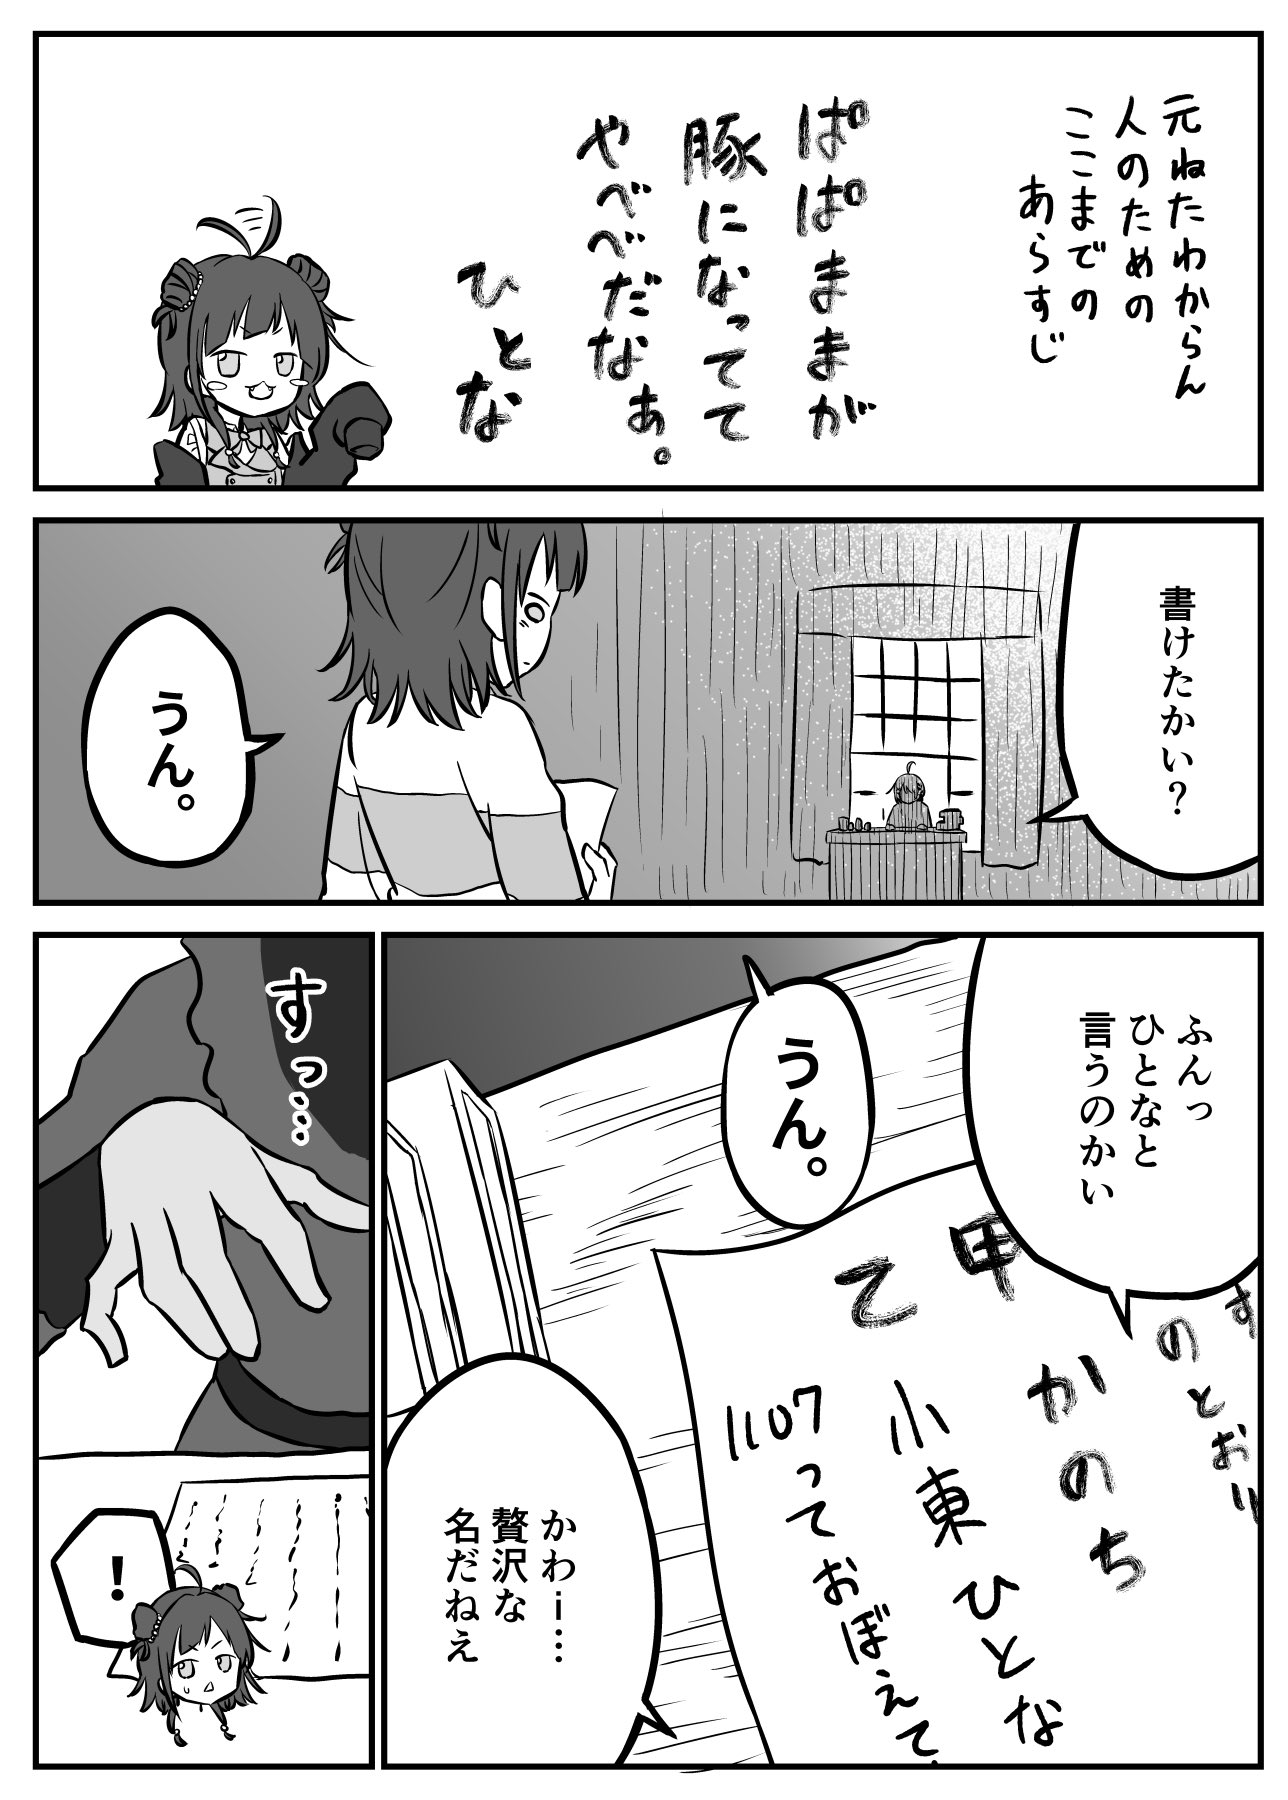 元ねたわからん
人のための
ここまでの
あらすじ
ぱぱままが
豚になってて
やべべだなぁ。
ひとな
書けたかい？
うん。
ふんっ
ひとなと
言うのかい
うん。
のとおり
甲 かのち
乙 小東ひとな
1107っておぼえて
かわｉ…
贅沢な
名だねえ
すっ…
！